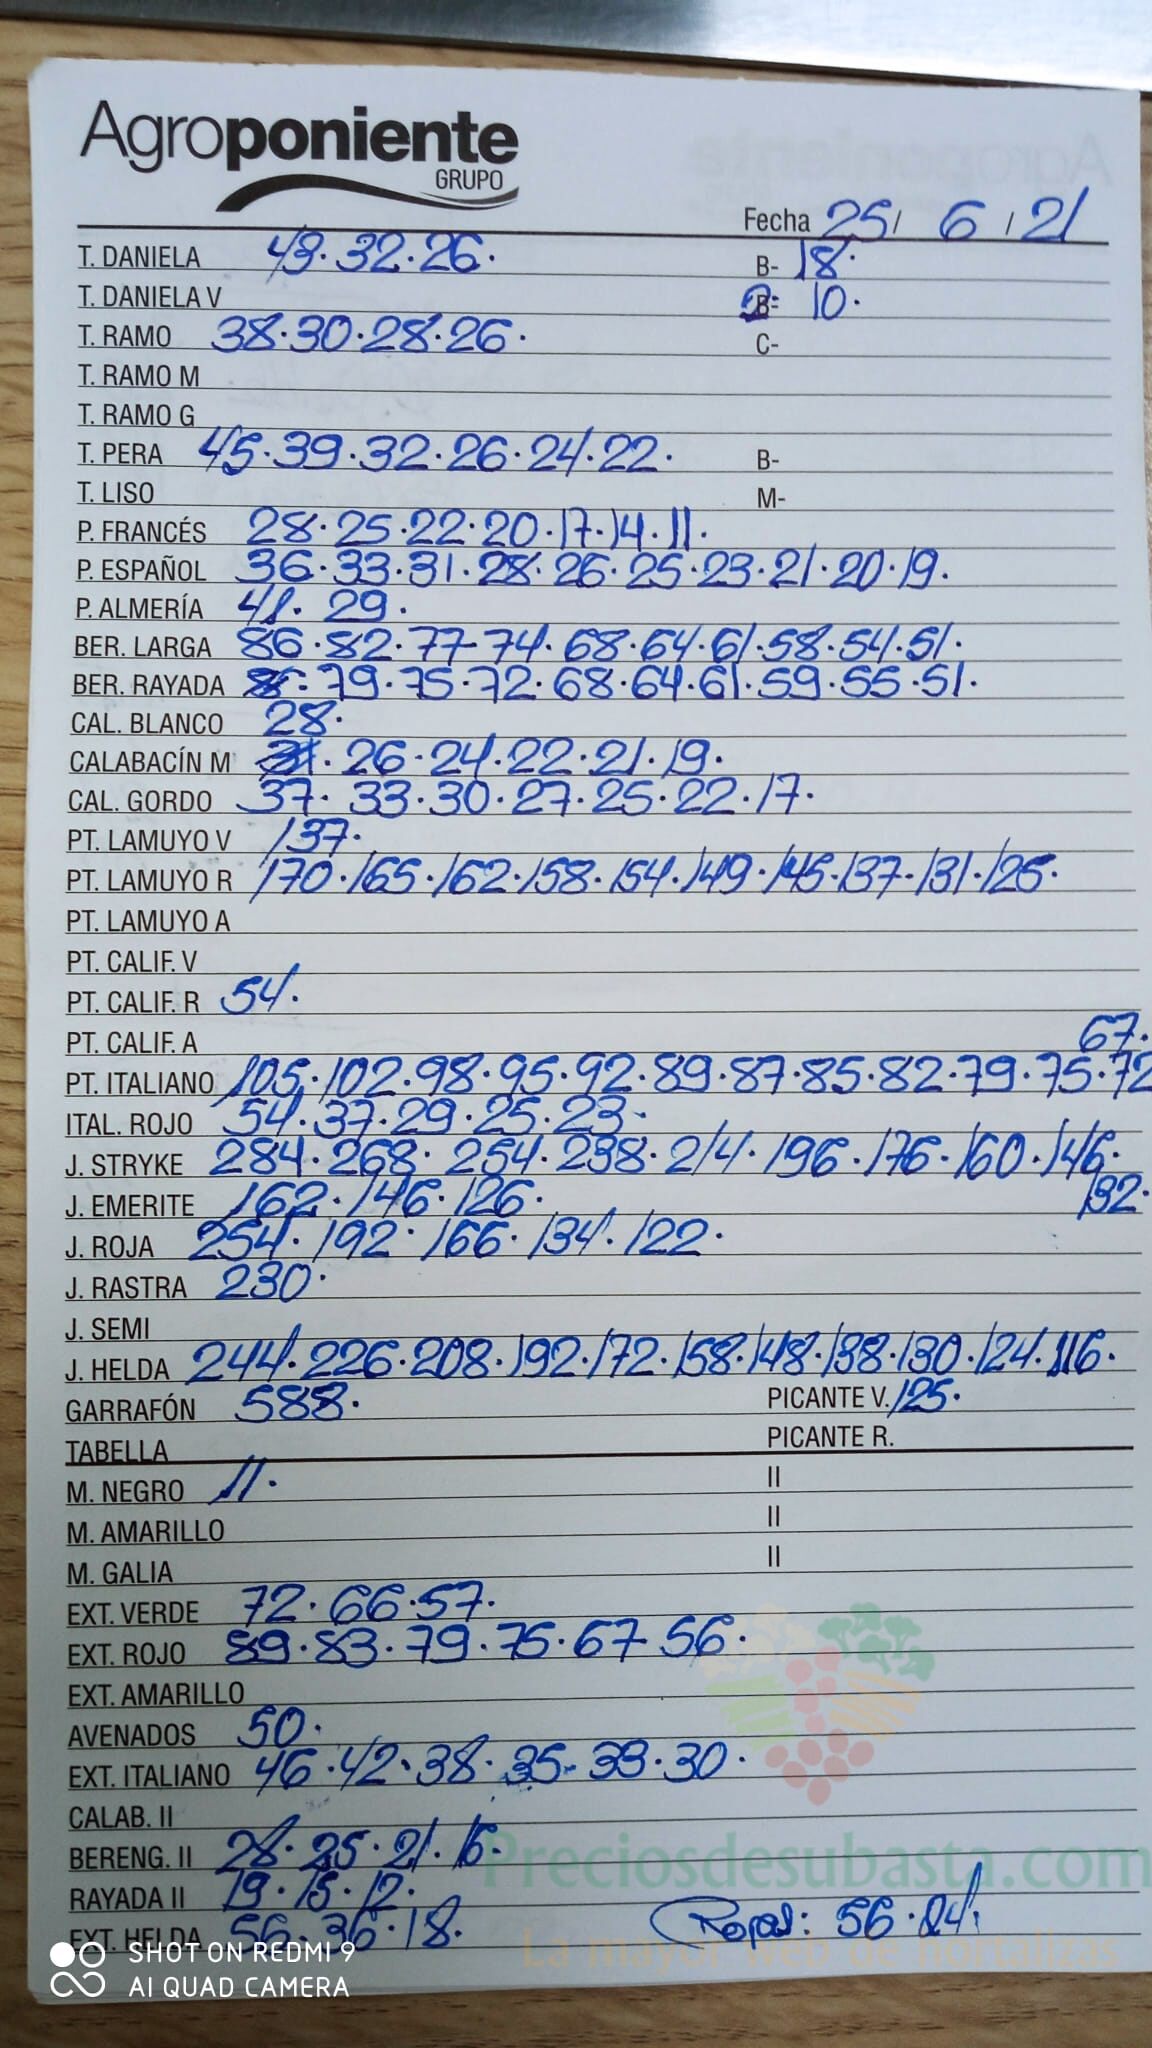 Agroponiente
GRUPO
Fecha 25/ 6 / 21
T. DANIELA 43·32·26· B- 18·
T. DANIELA V 2 B- 10·
T. RAMO 38·30·28·26· C-
T. RAMO M
T. RAMO G
T. PERA 45·39·32·26·24·22· B-
T. LISO M-
P. FRANCÉS 28·25·22·20·17·14·11·
P. ESPAÑOL 36·33·31·28·26·25·23·21·20·19·
P. ALMERÍA 41·29·
BER. LARGA 86·82·77·74·68·64·61·58·54·51·
BER. RAYADA 79·75·72·68·64·61·59·55·51·
CAL. BLANCO 28·
CALABACÍN M 31·26·24·22·21·19·
CAL. GORDO 37·33·30·27·25·22·17·
PT. LAMUYO V 137·
PT. LAMUYO R 170·165·162·158·154·149·145·137·131·125·
PT. LAMUYO A
PT. CALIF. V
PT. CALIF. R 54·
PT. CALIF. A
67·
PT. ITALIANO 105·102·98·95·92·89·87·85·82·79·75·72
ITAL. ROJO 54·37·29·25·23·
J. STRYKE 284·268·254·238·214·196·176·160·146·
132·
J. EMERITE 162·146·126·
J. ROJA 254·192·166·134·122·
J. RASTRA 230·
J. SEMI
J. HELDA 244·226·208·192·172·158·148·138·130·124·116·
GARRAFÓN 588· PICANTE V. 125·
TABELLA PICANTE R.
M. NEGRO 11· II
M. AMARILLO II
M. GALIA II
EXT. VERDE 72·66·57·
EXT. ROJO 89·83·79·75·67·56·
EXT. AMARILLO
AVENADOS 50·
EXT. ITALIANO 46·42·38·35·33·30·
CALAB. II
BERENG. II 28·25·21·16·
Preciosdesubasta.com
RAYADA II 19·15·12·
EXT. HELDA 56·36·18· 56·24·
La mayor web de hortalizas
SHOT ON REDMI 9
AI QUAD CAMERA